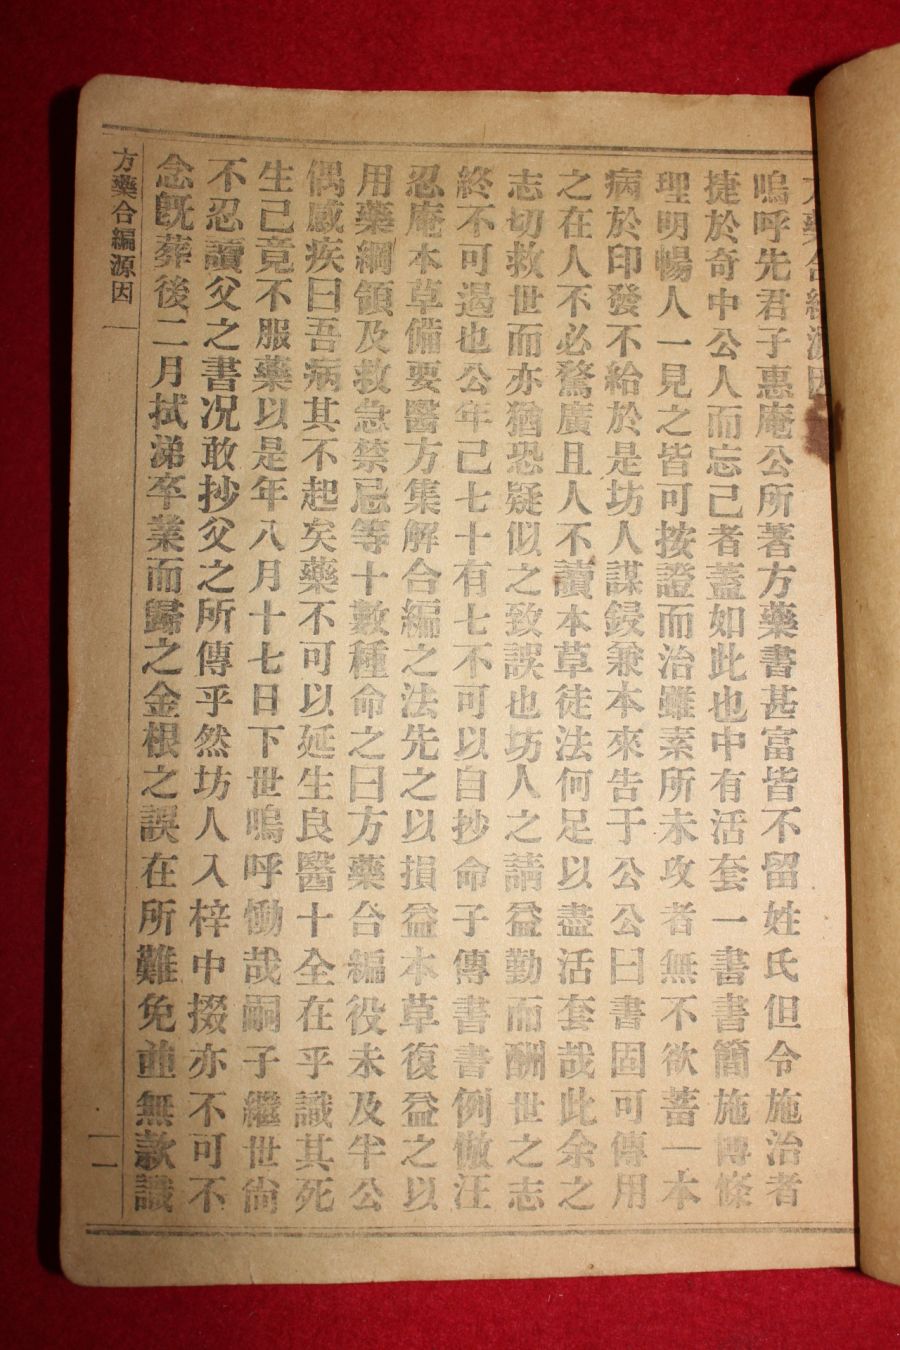 方藥合編源因
嗚呼先君子惠庵公所著方藥書甚富皆不留姓氏但令施治者
捷於奇中公人而忘己者蓋如此也中有活套一書書簡施博條
理明暢人一見之皆可按證而治雖素所未攻者無不欲蓄一本
病於印發不給於是坊人謀鋟兼本來告于公公曰書固可傳用
之在人不必騖廣且人不讀本草徒法何足以盡活套哉此余之
志切救世而亦猶恐疑似之致誤也坊人之請益勤而酬世之志
終不可遏也公年已七十有七不可以自抄命子傳書書例倣汪
忍庵本草備要醫方集解合編之法先之以損益本草復益之以
用藥綱領及救急禁忌等十數種命之曰方藥合編役未及半公
偶感疾曰吾病其不起矣藥不可以延生良醫十全在乎識其死
生已竟不服藥以是年八月十七日下世嗚呼慟哉嗣子繼世尙
不忍讀父之書况敢抄父之所傳乎然坊人入梓中掇亦不可不
念旣葬後二月拭涕卒業而歸之金根之誤在所難免並無款識
方藥合編源因
一
一